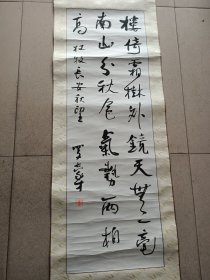 樓倚霜樹外鏡天無一毫
南山与秋色氣勢兩相
高 杜牧長安秋望